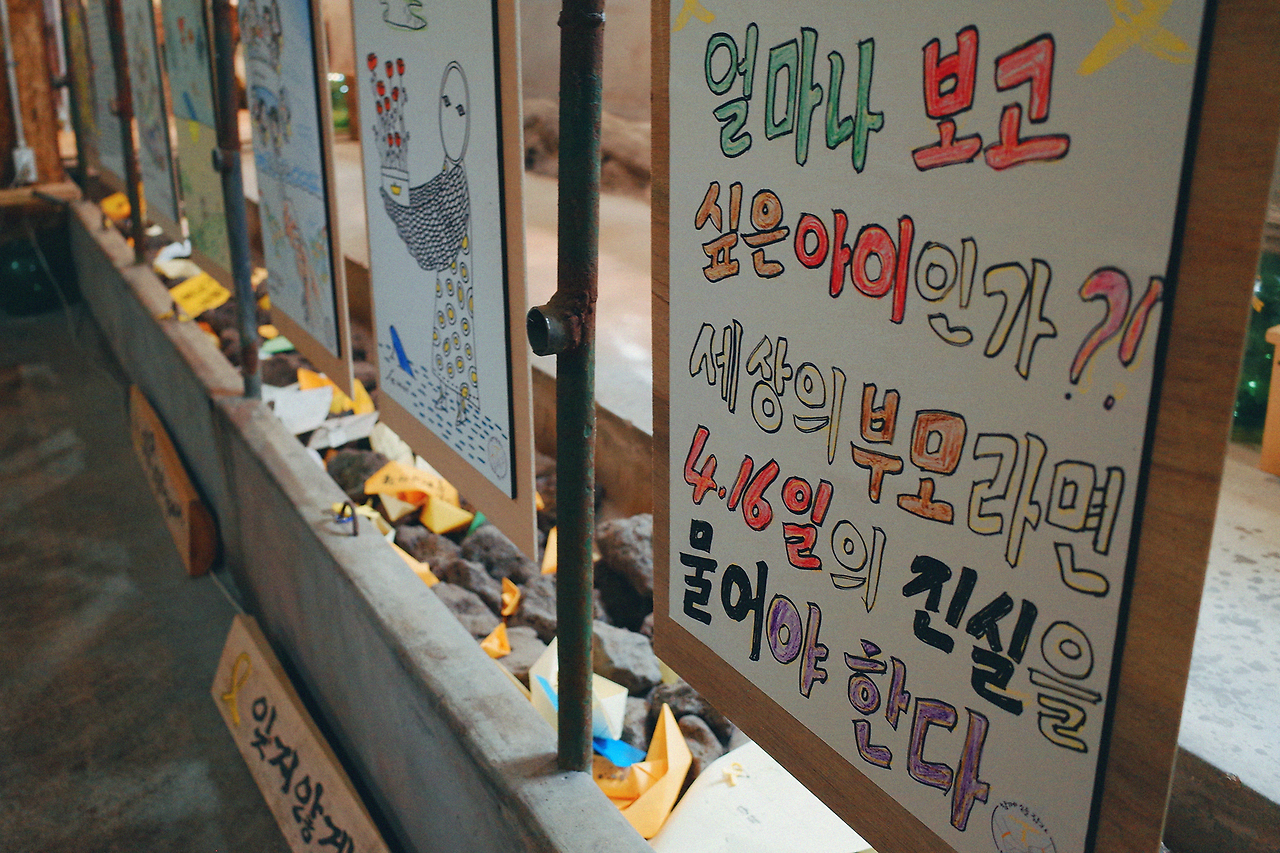 얼마나 보고
싶은 아이인가?!
세상의 부모라면
4.16일의 진실을
물어야 한다
잊지않겠